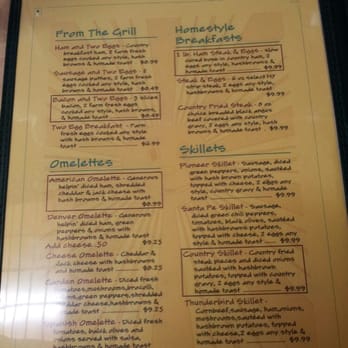 From The Grill
Ham and Two Eggs - Country
breakfast ham, 2 farm fresh
eggs cooked any style, hash
browns & homemade toast
$8.49
Sausage and Two Eggs - 2
sausage patties, 2 farm fresh
eggs cooked any style, hash
browns & homade toast $8.49
Bacon and Two Eggs - 3 slices
bacon, 2 farm fresh eggs
cooked any style, hash browns
& homade toast $8.49
Two Egg Breakfast - Farm
fresh eggs cooked any style
with hash browns & homade
toast $6.99
Omelettes
American Omelette - Generous
helpin' diced ham, shredded
cheddar & jack cheese with
hash browns & homade toast
$8.99
Denver Omelette - Generous
helpin' diced ham, green
peppers & onions with
hashbrowns & homade toast
Add cheese .50 $9.25
Cheese Omelette - Cheddar &
Jack cheese with hashbrowns
and homade toast $8.25
Garden Omelette - Diced fresh
tomatoes, mushrooms, broccoli,
green peppers, shredded
cheddar cheese, hashbrowns
& homade toast $9.25
Spanish Omelette - Diced fresh
tomatoes, bell, olives and
onions served with salsa,
hashbrowns & homade toast
Homestyle
Breakfasts
1 lb. Ham Steak & Eggs - slow
cured bone in country ham, 2
eggs any style, hashbrowns &
homade toast $9.99
Steak & Eggs - 8 oz select NY
strip steak, 2 eggs any style,
hash browns & homade toast
$9.99
Country Fried Steak - 8 oz
choice breaded black angus
beef covered with country
gravy, 2 eggs any style, hash
browns & homade toast $9.99
Skillets
Pioneer Skillet - Sausage, diced
green peppers, onions, sautéed
with hash brown potatoes,
topped with cheese, 2 eggs any
style, country gravy & homade
toast $9.99
Santa Fe Skillet - Sausage,
diced green chili peppers,
tomatoes, black olives, sautéed
with hashbrowns potatoes,
topped with cheese, 2 eggs any
style & homade toast $9.99
Country Skillet - Country fried
steak pieces and diced onions
sautéed with hashbrown
potatoes, topped with country
gravy, 2 eggs any style &
homade toast $9.99
Thunderbird Skillet -
Cornbeef, sausage, ham, onions,
mushrooms, sautéed with
hashbrown potatoes, topped
with cheese, 2 eggs any style &
homade toast $9.99